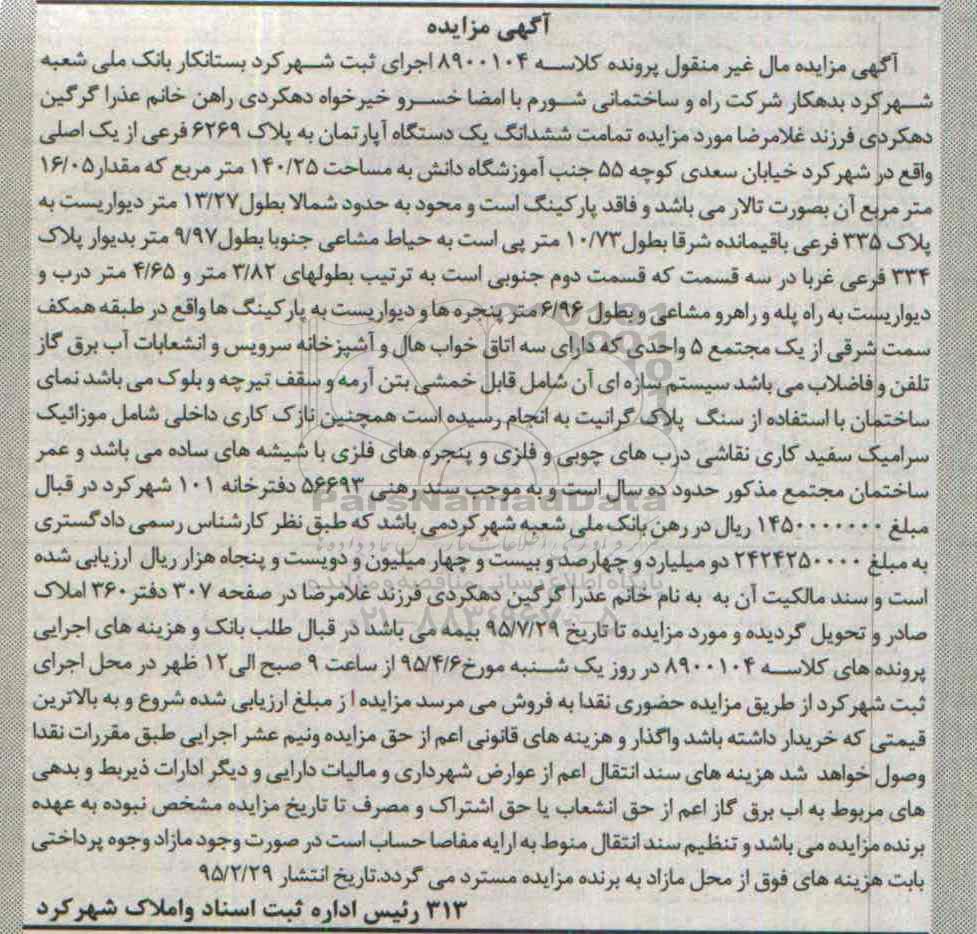 آگهی مزایده
آگهی مزایده مال غیر منقول پرونده کلاسه ۸۹۰۰۱۰۴ اجرای ثبت شهرکرد بستانکار بانک ملی شعبه
شهرکرد بدهکار شرکت راه و ساختمانی شورم با امضا خسرو خیرخواه دهکردی راهن خانم عذرا گرگین
دهکردی فرزند غلامرضا مورد مزایده تمامت ششدانگ یک دستگاه آپارتمان به پلاک ۶۲۶۹ فرعی از یک اصلی
واقع در شهرکرد خیابان سعدی کوچه ۵۵ جنب آموزشگاه دانش به مساحت ۱۴۰/۲۵ متر مربع که مقدار۱۶/۰۵
متر مربع آن بصورت تالار می باشد و فاقد پارکینگ است و محود به حدود شمالا بطول۱۳/۲۷ متر دیواریست به
پلاک ۳۳۵ فرعی باقیمانده شرقا بطول۱۰/۷۳ متر پی است به حیاط مشاعی جنوبا بطول۹/۹۷ متر بدیوار پلاک
۳۳۴ فرعی غربا در سه قسمت که قسمت دوم جنوبی است به ترتیب بطولهای ۳/۸۲ متر و ۴/۶۵ متر درب و
دیواریست به راه پله و راهرو مشاعی و بطول ۶/۹۶ متر پنجره ها و دیواریست به پارکینگ ها واقع در طبقه همکف
سمت شرقی از یک مجتمع ۵ واحدی که دارای سه اتاق خواب هال و آشپزخانه سرویس و انشعابات آب برق گاز
تلفن و فاضلاب می باشد سیستم سازه ای آن شامل قابل خمشی بتن آرمه و سقف تیرچه و بلوک می باشد نمای
ساختمان با استفاده از سنگ پلاک گرانیت به انجام رسیده است همچنین نازک کاری داخلی شامل موزائیک
سرامیک سفید کاری نقاشی درب های چوبی و فلزی و پنجره های فلزی با شیشه های ساده می باشد و عمر
ساختمان مجتمع مذکور حدود ده سال است و به موجب سند رهنی ۵۶۶۹۳ دفترخانه ۱۰۱ شهرکرد در قبال
مبلغ ۱۴۵۰۰۰۰۰۰۰ ریال در رهن بانک ملی شعبه شهرکردمی باشد که طبق نظر کارشناس رسمی دادگستری
به مبلغ ۲۴۲۴۲۵۰۰۰۰ دو میلیارد و چهارصد و بیست و چهار میلیون و دویست و پنجاه هزار ریال ارزیابی شده
است و سند مالکیت آن به به نام خانم عذرا گرگین دهکردی فرزند غلامرضا در صفحه ۳۰۷ دفتر ۳۶۰ املاک
صادر و تحویل گردیده و مورد مزایده تا تاریخ ۹۵/۷/۲۹ بیمه می باشد در قبال طلب بانک و هزینه های اجرایی
پرونده های کلاسه ۸۹۰۰۱۰۴ در روز یک شنبه مورخ۹۵/۴/۶ از ساعت ۹ صبح الی۱۲ ظهر در محل اجرای
ثبت شهرکرد از طریق مزایده حضوری نقدا به فروش می مرسد مزایده ا ز مبلغ ارزیابی شده شروع و به بالاترین
قیمتی که خریدار داشته باشد واگذار و هزینه های قانونی اعم از حق مزایده ونیم عشر اجرایی طبق مقررات نقدا
وصول خواهد شد هزینه های سند انتقال اعم از عوارض شهرداری و مالیات دارایی و دیگر ادارات ذیربط و بدهی
های مربوط به اب برق گاز اعم از حق انشعاب یا حق اشتراک و مصرف تا تاریخ مزایده مشخص نبوده به عهده
برنده مزایده می باشد و تنظیم سند انتقال منوط به ارایه مفاصا حساب است در صورت وجود مازاد وجوه پرداختی
بابت هزینه های فوق از محل مازاد به برنده مزایده مسترد می گردد.تاریخ انتشار ۹۵/۲/۲۹
۳۱۳ رئیس اداره ثبت اسناد واملاک شهرکرد
ParsNamadData
پایگاه اطلاع رسانی مناقصه و مزایده